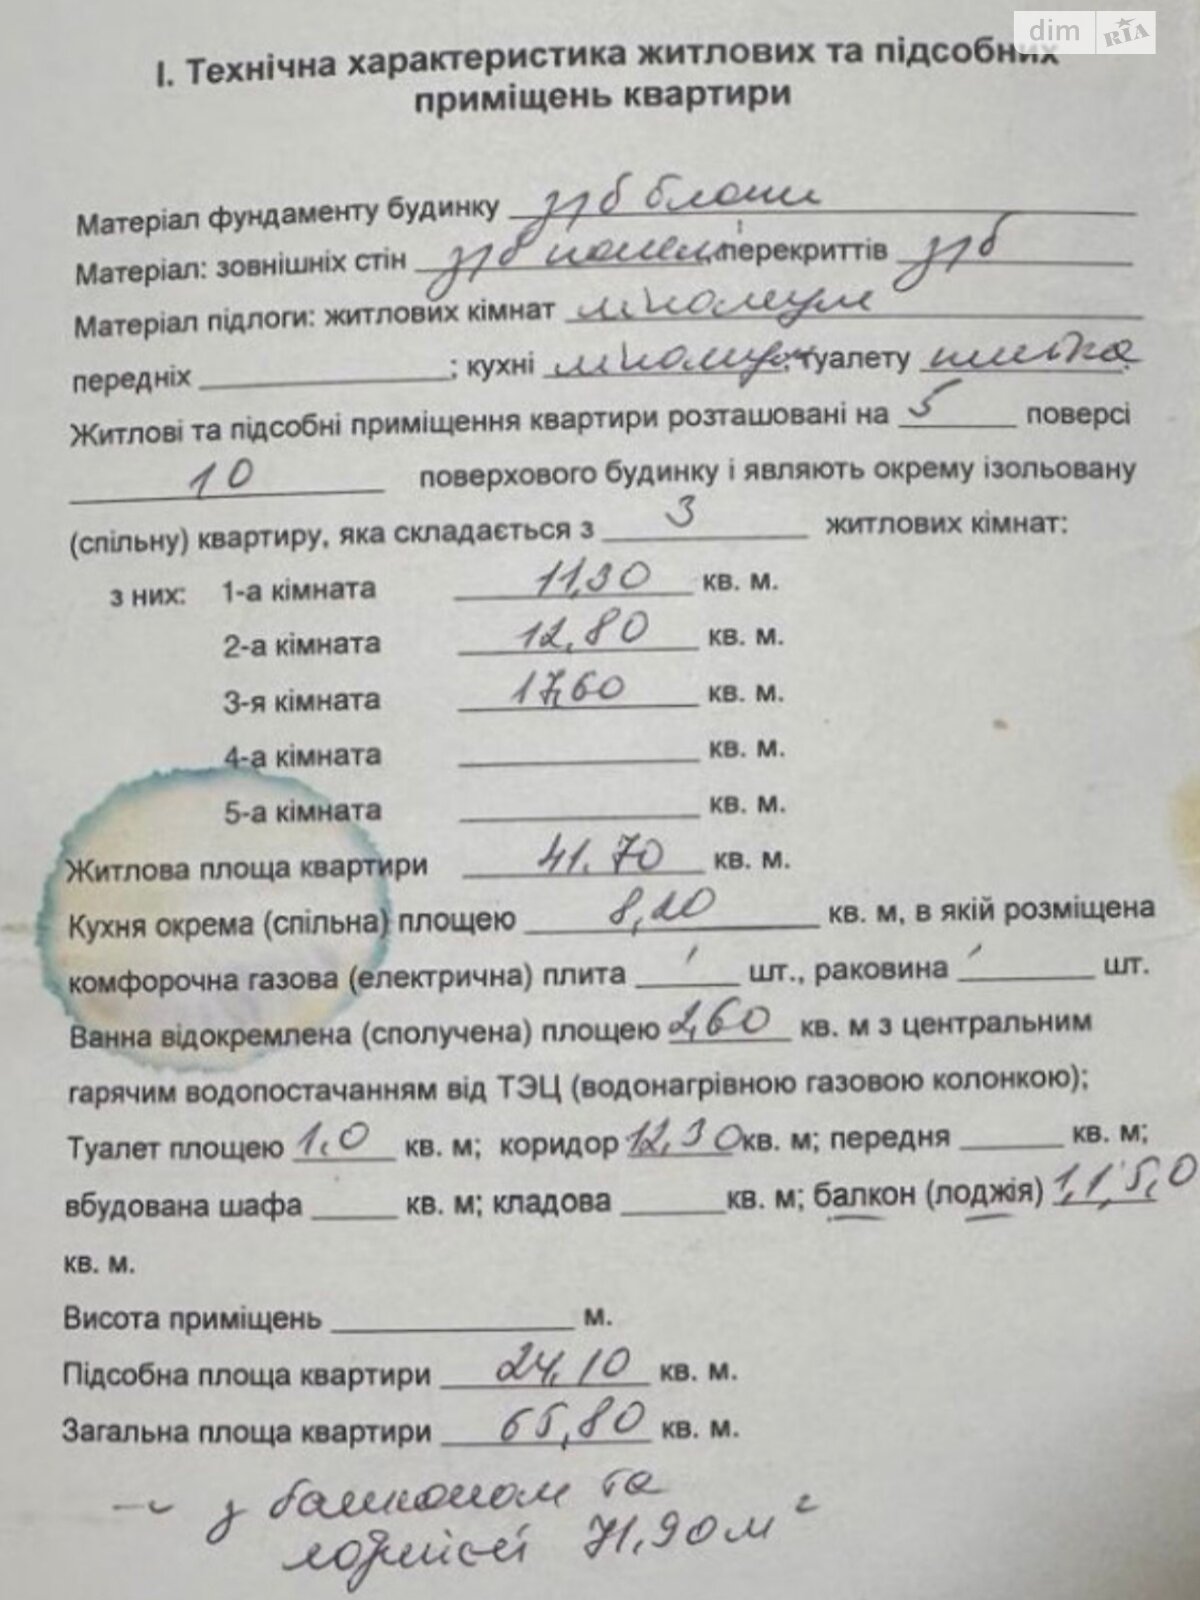 dim RIA
I. Технічна характеристика житлових та підсобних
приміщень квартири
Матеріал фундаменту будинку з/б блоки
Матеріал: зовнішніх стін з/б панелі, перекриттів з/б
Матеріал підлоги: житлових кімнат лінолеум
передніх ; кухні лінолеум, туалету плитка
Житлові та підсобні приміщення квартири розташовані на 5 поверсі
10 поверхового будинку і являють окрему ізольовану
(спільну) квартиру, яка складається з 3 житлових кімнат:
з них: 1-а кімната 11,30 кв. м.
2-а кімната 12,80 кв. м.
3-я кімната 17,60 кв. м.
4-а кімната кв. м.
5-а кімната кв. м.
Житлова площа квартири 41.70 кв. м.
Кухня окрема (спільна) площею 8,20 кв. м, в якій розміщена
комфорочна газова (електрична) плита 1 шт., раковина 1 шт.
Ванна відокремлена (сполучена) площею 2,60 кв. м з центральним
гарячим водопостачанням від ТЭЦ (водонагрівною газовою колонкою);
Туалет площею 1.0 кв. м; коридор 12,30 кв. м; передня кв. м;
вбудована шафа кв. м; кладова кв. м; балкон (лоджія) 1,1, 5,0
кв. м.
Висота приміщень м.
Підсобна площа квартири 24,10 кв. м.
Загальна площа квартири 65,80 кв. м.
з балконом та
лоджією 71,90 м²